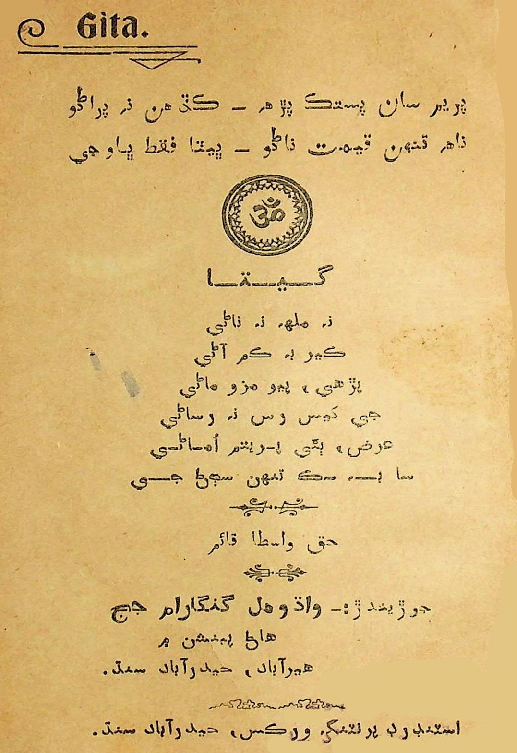 Gita.
پريم سان پستڪ پڙهہ ــ ڪڏهن نہ پراڻو
ناهہ تنهن قيمت ناڻو ــ ڀيٽا فقط ڀاو جي
ॐ
گــيــتــا
نہ ملهہ نہ ناڻي
ڪير بہ ڪم آڻي
پڙهي، پيو مزو ماڻي
جي ڏيس وس نہ وساڻي
عرض، ٻئي پريتم
سا تنهن سڄڻ جــي
حق واسطا قائم
جوڙيندڙ:ــ واڌومل گنگارام جج
هاڻ پينشن ۾
هيرآباد، حيدرآباد سنڌ.
اسٽنڊرڊ پرنٽنگ ورڪس، حيدرآباد سنڌ.